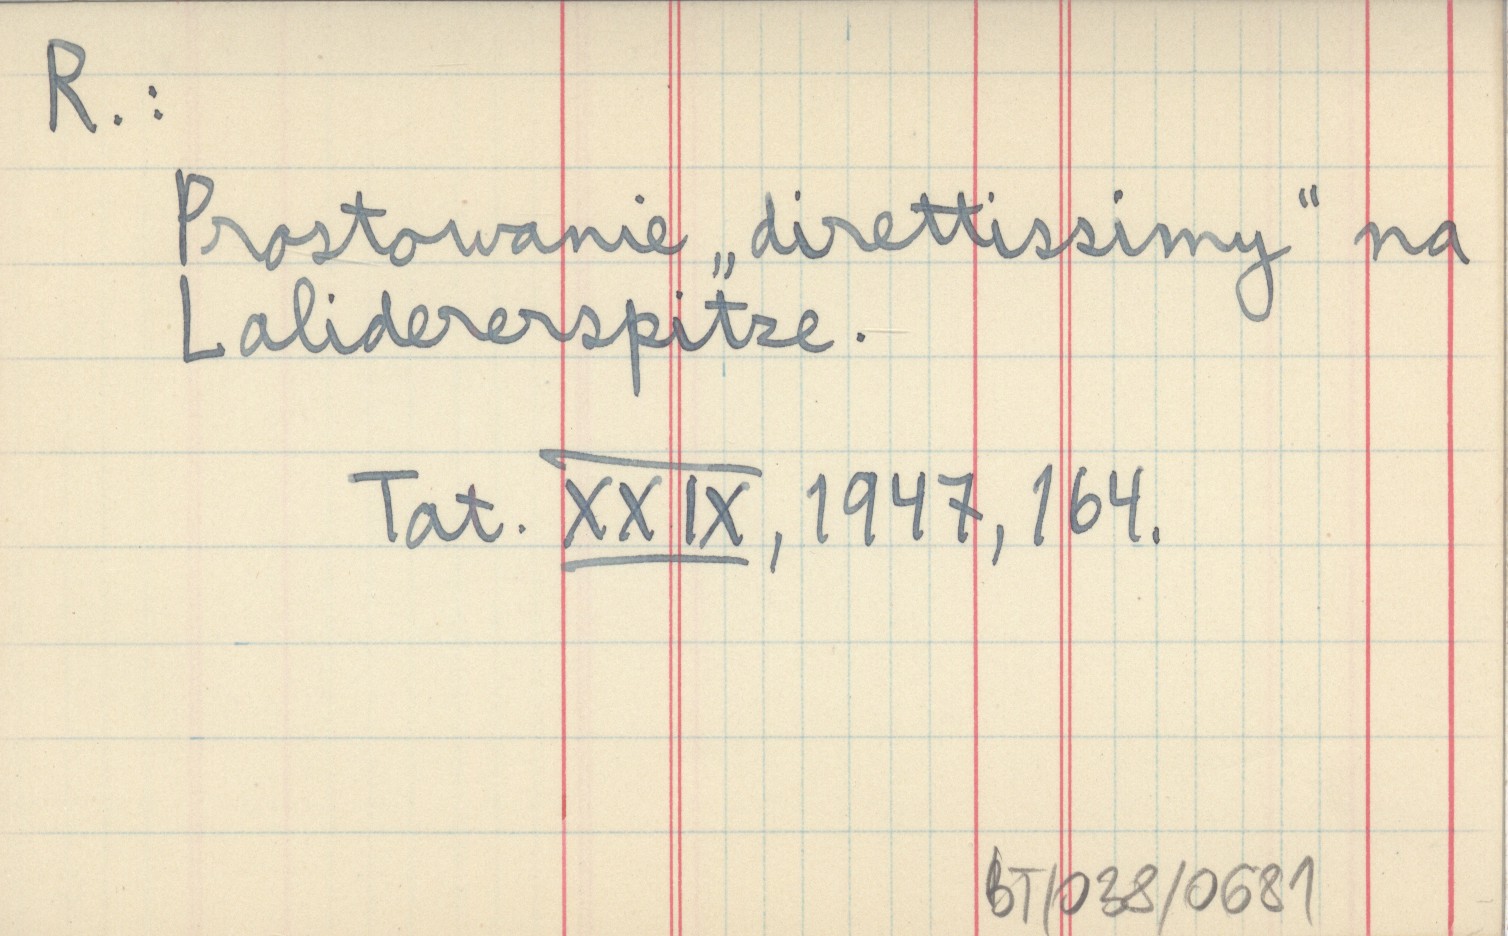 R.:
Prostowanie „direttissimy“ na
Lalidererspitze.
Tat. XXIX, 1947, 164.
BT/038/0681